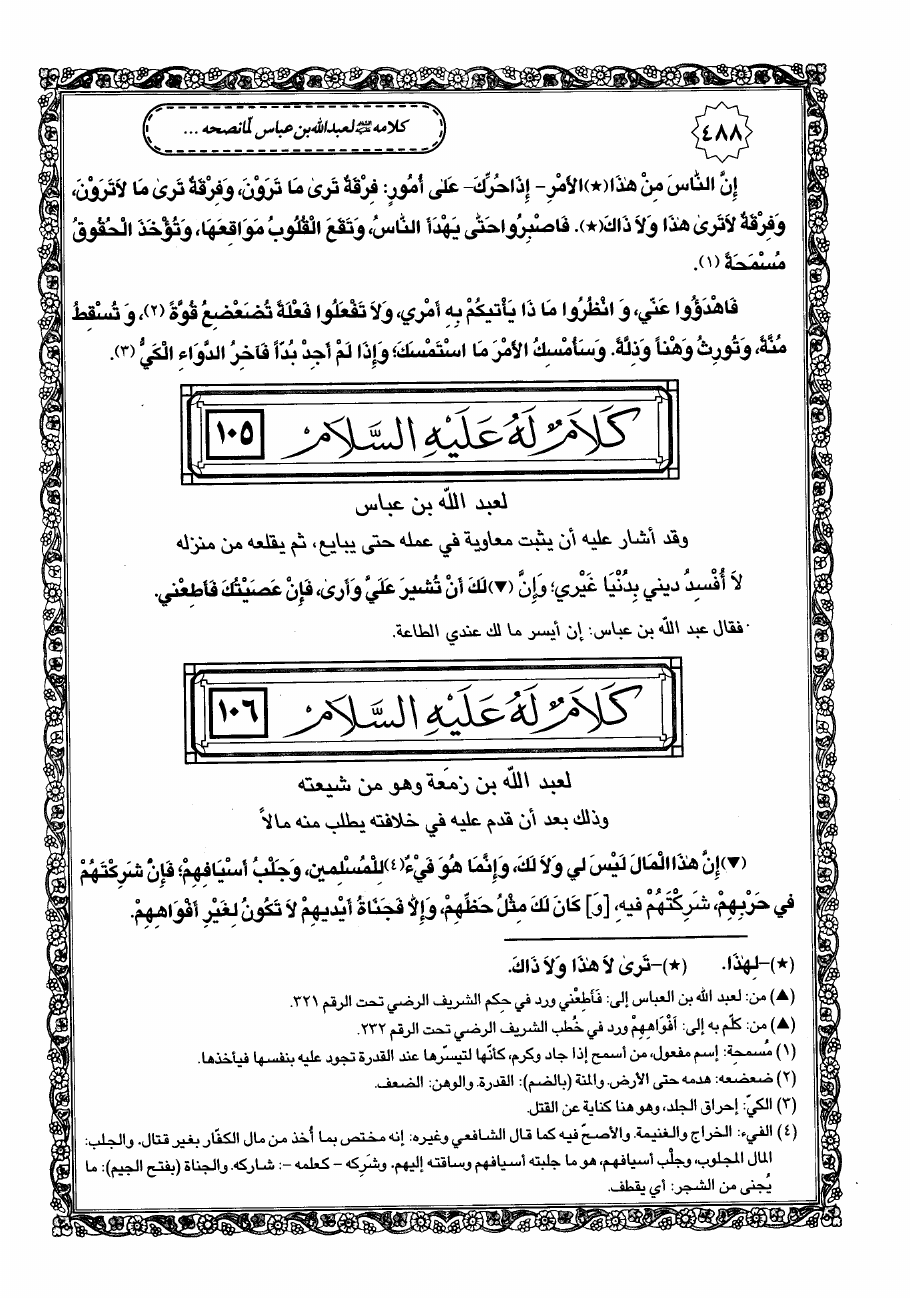 ٤٨٨
كلامه عليه السلام لعبد الله بن عباس لما نصحه ...
إِنَّ النَّاسَ مِنْ هٰذَا(★)الأَمْرِ- إِذَا حُرِّكَ- عَلىٰ أُمُورٍ: فِرْقَةٌ تَرىٰ مَا تَرَوْنَ، وَفِرْقَةٌ تَرىٰ مَا لاَ تَرَوْنَ،
وَفِرْقَةٌ لاَ تَرىٰ هٰذَا وَلاَ ذَاكَ(★). فَاصْبِرُوا حَتّٰى يَهْدَأَ النَّاسُ، وَتَقَعَ الْقُلُوبُ مَوَاقِعَهَا، وَتُؤْخَذَ الْحُقُوقُ
مُسْمَحَةً (١).
فَاهْدَؤُوا عَنّي، وَ انْظُرُوا مَا ذَا يَأْتيكُمْ بِهِ أَمْري، وَلاَ تَفْعَلُوا فَعْلَةً تُضَعْضِعُ قُوَّةً (٢)، وَ تُسْقِطُ
مُنَّةً، وَتُورِثُ وَهْناً وَذِلَّةً. وَسَأُمْسِكُ الأَمْرَ مَا اسْتَمْسَكَ؛ وَإِذَا لَمْ أَجِدْ بُدّاً فَآخِرُ الدَّوَاءِ الْكَيُّ (٣).
كَلَامٌ لَهُ عَلَيْهِ السَّلَامُ
١٠٥
لعبد اللّٰه بن عباس
وقد أشار عليه أن يثبت معاوية في عمله حتى يبايع، ثم يقلعه من منزله
لاَ أُفْسِدُ ديني بِدُنْيَا غَيْري؛ وَإِنَّ (▼)لَكَ أَنْ تُشيرَ عَلَيَّ وَأَرىٰ، فَإِنْ عَصَيْتُكَ فَأَطِعْني.
فقال عبد اللّٰه بن عباس: إن أيسر ما لك عندي الطاعة.
كَلَامٌ لَهُ عَلَيْهِ السَّلَامُ
١٠٦
لعبد اللّٰه بن زمَعة وهو من شيعته
وذلك بعد أن قدم عليه في خلافته يطلب منه مالاً
(▼)إِنَّ هٰذَا الْمَالَ لَيْسَ لي وَلاَ لَكَ، وَإِنَّمَا هُوَ فَيْءٌ(٤)لِلْمُسْلِمينَ، وَجَلْبُ أَسْيَافِهِمْ؛ فَإِنْ شَرِكْتَهُمْ
في حَرْبِهِمْ، شَرِكْتَهُمْ فيهِ، [وَ] كَانَ لَكَ مِثْلُ حَظِّهِمْ، وَإِلاَّ فَجَنَاةُ أَيْديهِمْ لاَ تَكُونُ لِغَيْرِ أَفْوَاهِهِمْ.
(★)-لِهٰذَا. (★)-تَرىٰ لاَ هٰذَا وَلاَ ذَاكَ.
(▲) من: لعبد الله بن العباس إلى: فَأَطِعْني ورد في حِكم الشريف الرضي تحت الرقم ٣٢١.
(▲) من: كلّم به إلى: أَفْوَاهِهِمْ ورد في خُطب الشريف الرضي تحت الرقم ٢٣٢.
(١) مُسمحة: إسم مفعول، من أسمح إذا جاد وكرم، كأنّها لتيسّرها عند القدرة تجود عليه بنفسها فيأخذها.
(٢) ضعضعه: هدمه حتى الأرض. والمنة (بالضم): القدرة. والوهن: الضعف.
(٣) الكيّ: إحراق الجلد، وهو هنا كناية عن القتل.
(٤) الفيء: الخراج والغنيمة. والأصحّ فيه كما قال الشافعي وغيره: إنه مختص بما أُخذ من مال الكفّار بغير قتال. والجلب:
المال المجلوب، وجلْب أسيافهم، هو ما جلبته أسيافهم وساقته إليهم، وشَرِكه - كعلمه -: شاركه. والجناة (بفتح الجيم): ما
يُجنى من الشجر: أي يقطف.